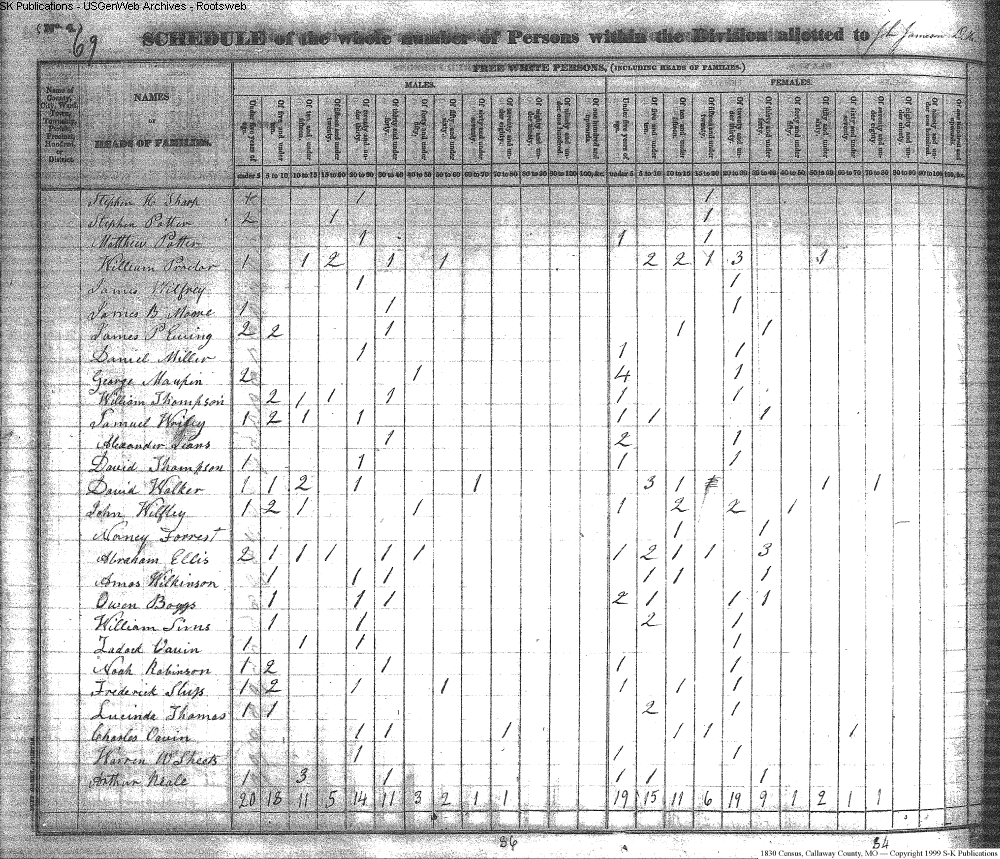 SK Publications - USGenWeb Archives - Rootsweb
(No. 4.) 69
SCHEDULE of the whole number of Persons within the Division allotted to Jno Jameson
FREE WHITE PERSONS, (INCLUDING HEADS OF FAMILIES.)
MALES. FEMALES.
Name of County, City, Ward, Town, Township, Parish, Precinct, Hundred, or District.
NAMES OF HEADS OF FAMILIES.
under 5 5 to 10 10 to 15 15 to 20 20 to 30 30 to 40 40 to 50 50 to 60 60 to 70 70 to 80 80 to 90 90 to 100 100, &c. under 5 5 to 10 10 to 15 15 to 20 20 to 30 30 to 40 40 to 50 50 to 60 60 to 70 70 to 80 80 to 90 90 to 100 100, &c.
Stephen H Sharp 4 1 1
Stephen Potter 2 1 1
Matthew Potter 1 1 1
William Proctor 1 1 2 1 1 2 2 1 3 1
James Wilfrey 1 1
James B Moore 1 1 1
James P Ewing 2 2 1 1 1
Daniel Miller 1 1 1
George Maupin 2 1 4 1
William Thompson 2 1 1 1 1 1
Samuel 1 2 1 1 1 1 1
Alexander 1 2 1
David Thompson 1 1 1 1
David Walker 1 1 2 1 1 3 1 1 1
John Wilfley 1 2 1 1 1 2 2 1
Nancy Forrest 1 1
Abraham Ellis 2 1 1 1 1 1 1 2 1 1 3
Amos Wilkinson 1 1 1 1 1 1
Owen Boggs 1 1 1 2 1 1 1
William Sims 1 1 2 1
1 1 1 1
Noah Robinson 1 2 1 1 1
Frederick 1 2 1 1 1 1 1
Lucinda Thomas 1 1 2 1
Charles 1 1 1 1 1 1
Warren W Sheets 1 1 1
Arthur Neale 1 3 1 1 1 1
20 18 11 5 14 11 3 2 1 1 19 15 11 6 19 9 1 2 1 1
86 84
1830 Census, Callaway County, MO — Copyright 1999 S-K Publications